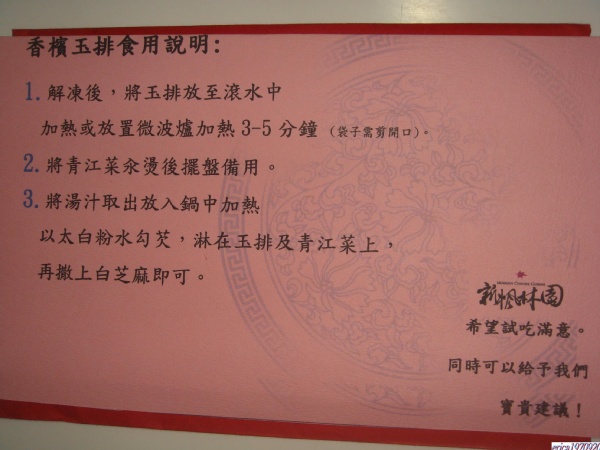 香檳玉排食用說明:
1. 解凍後,將玉排放至滾水中
加熱或放置微波爐加熱 3-5 分鐘 (袋子需剪開口)。
2. 將青江菜汆燙後擺盤備用。
3. 將湯汁取出放入鍋中加熱
以太白粉水勾芡,淋在玉排及青江菜上,
再撒上白芝麻即可。
新楓林園
希望試吃滿意。
同時可以給予我們
寶貴建議!